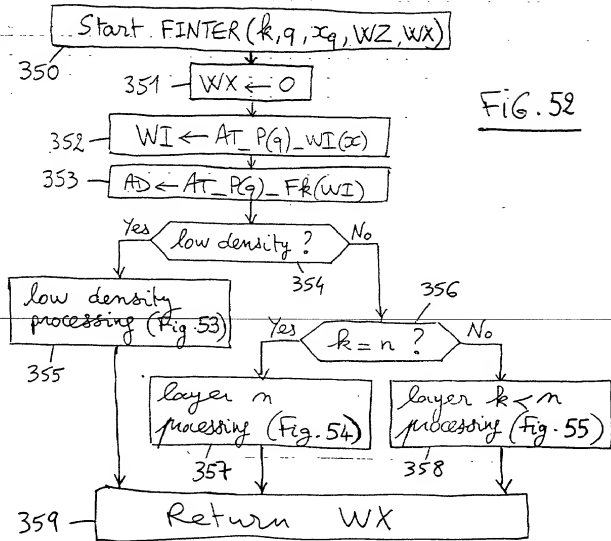 Start FINTER (k, q, xq, WZ, WX)
350
351
WX ← 0
FiG. 52
352
WI ← AT_P(q)_WI(x)
353
AD ← AT_P(q)_Fk(WI)
Yes
low density ?
No
354
low density
processing (Fig. 53)
355
356
Yes
k = n ?
No
layer n
processing (Fig. 54)
357
layer k < n
processing (Fig. 55)
358
359
Return WX